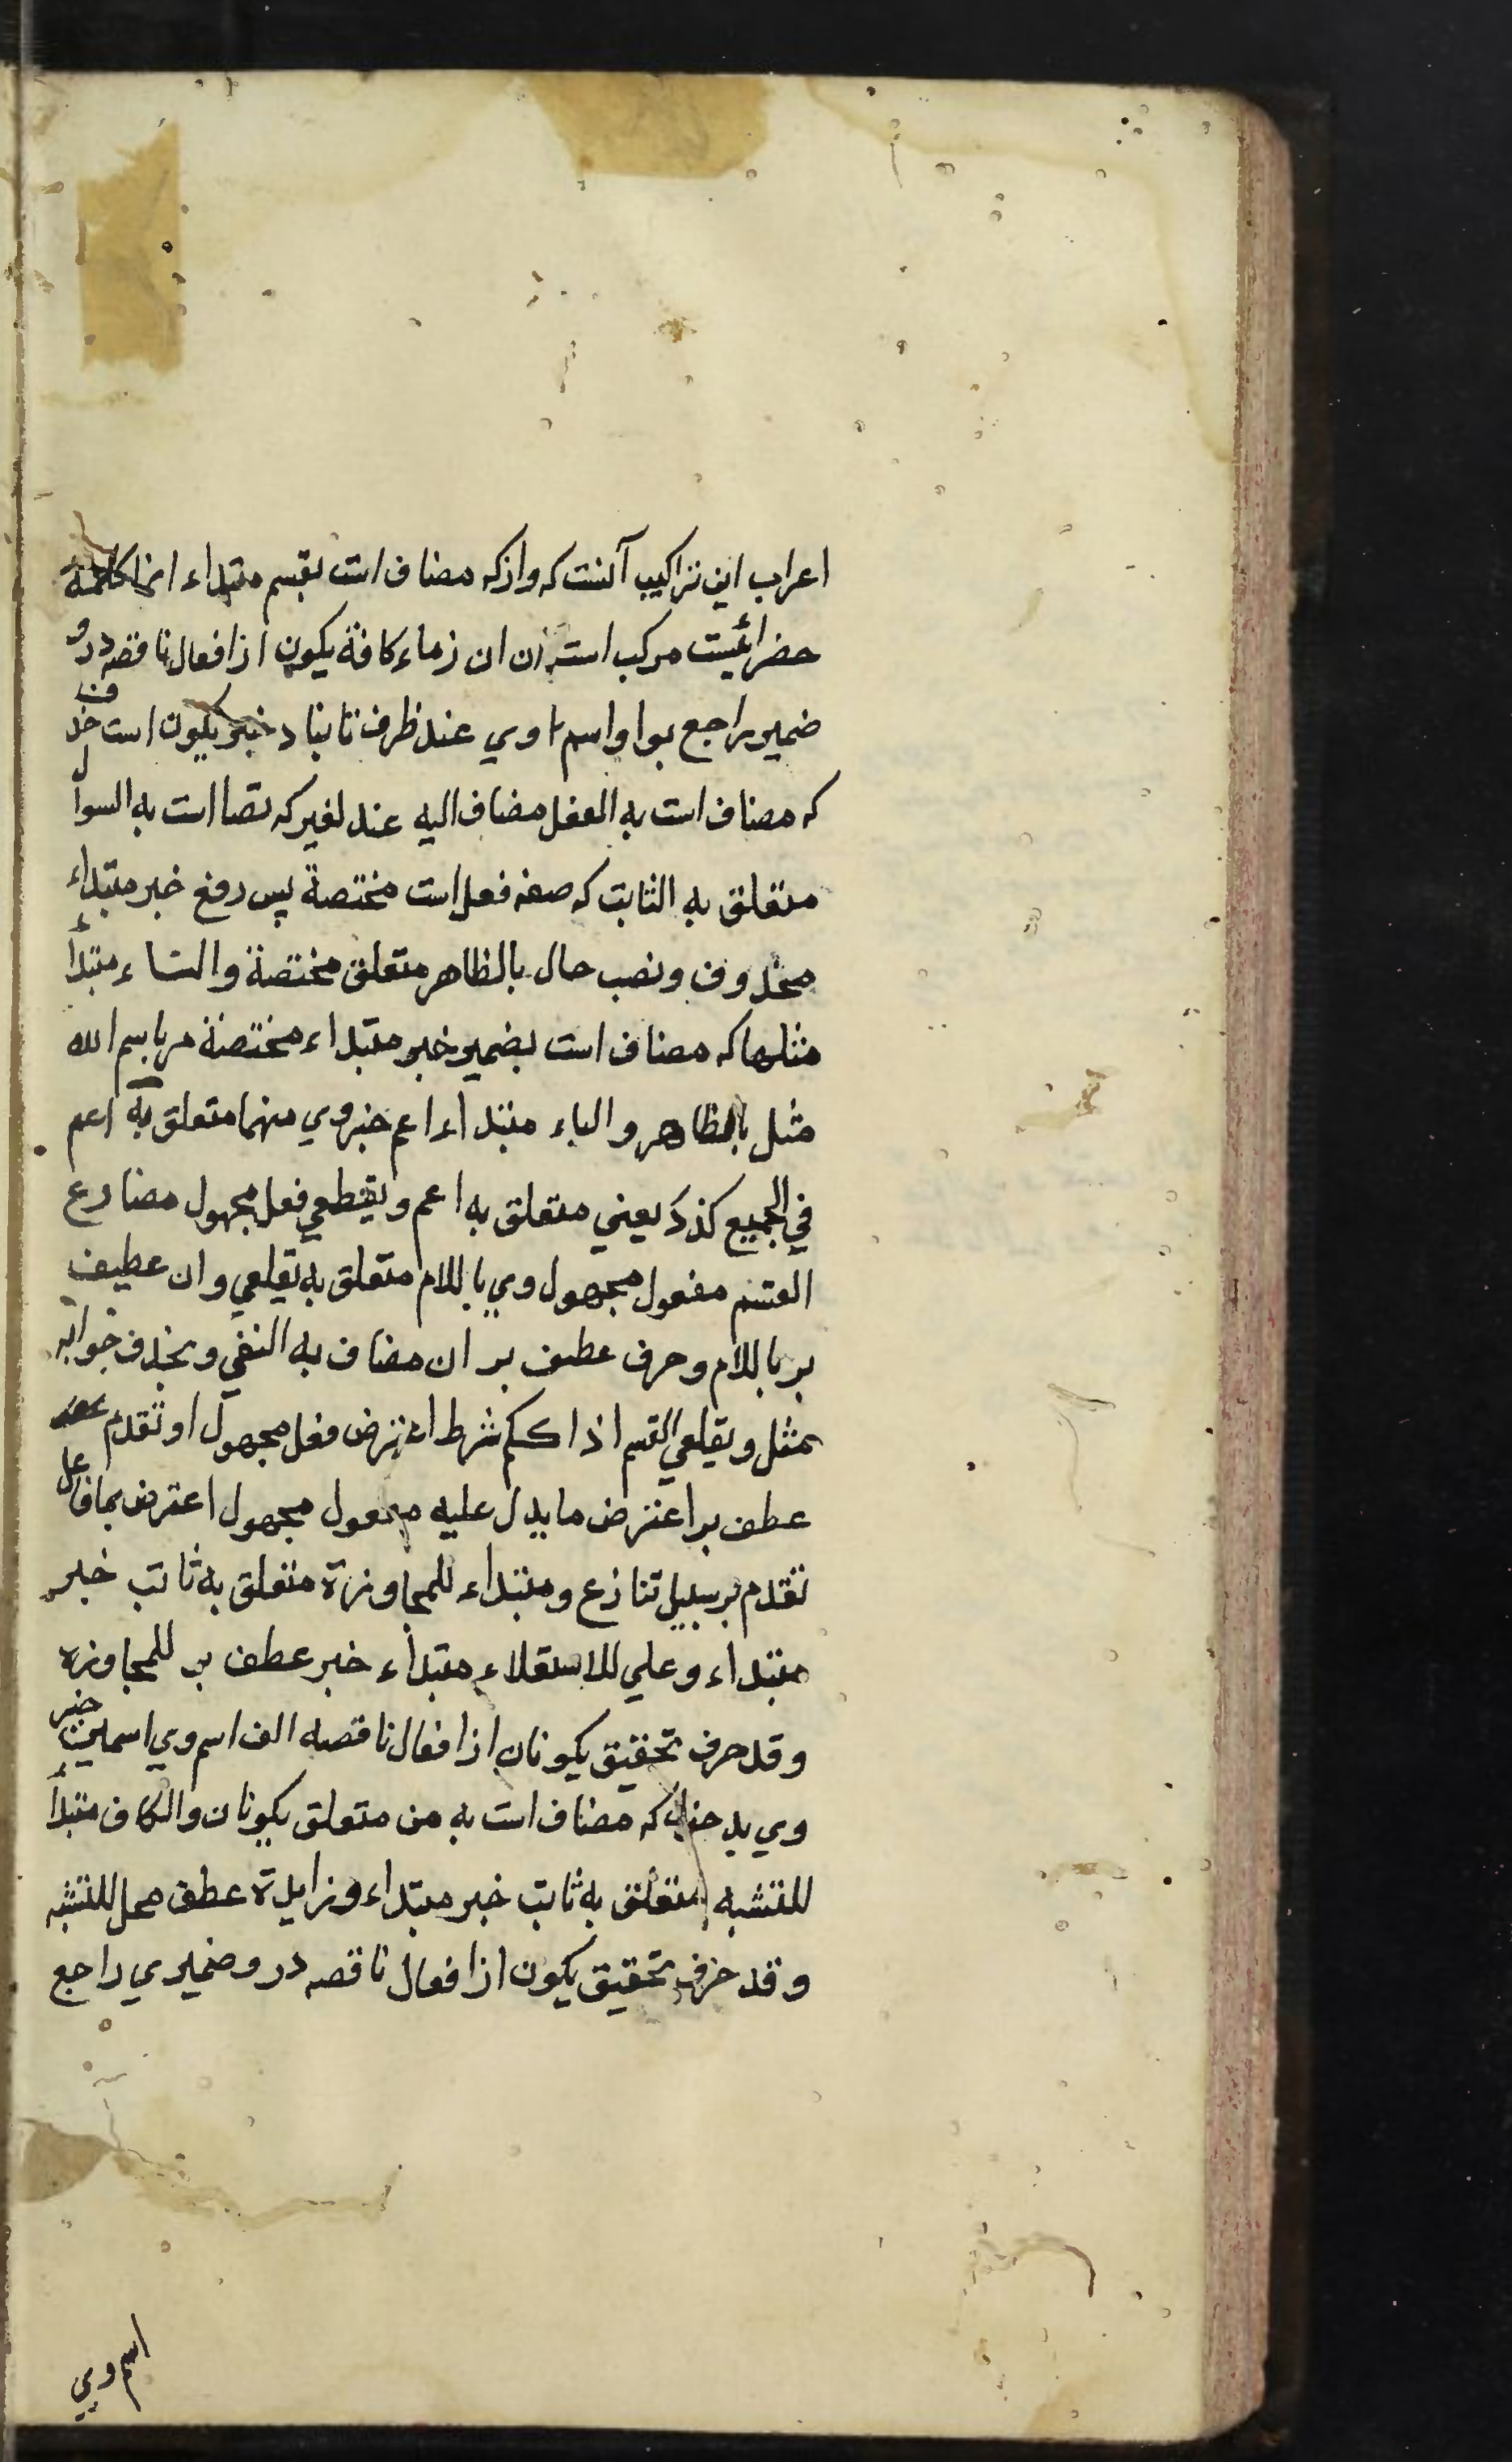 اعراب این تراکیب آنست که واو که مضاف است بقسم مبتداء انما کلمهٔ
حضرائیست مرکب است از ان زماء کافة یکون از افعال ناقصه درو
ضمیر راجع بواو اسم اوی عند ظرف ثابتا خبر یکون است حذف
که مضاف است به الفعل مضاف الیه عند لغیر که مضا است به السوال
متعلق به الثابت که صفه فعل است مختصة پس رفع خبر مبتداء
محذوف ونصب حال بالظاهر متعلق مختصة والتاء مبتدأ
مثلها که مضاف است بضمیر خبر مبتداء مختصة مر باسم الله
مثل بالظاهر والباء مبتداء اعم خبر وی منهما متعلق به اعم
في الجمیع کذک یعني متعلق به اعم ویقطعی فعل مجهول مضارع
القسم مفعول مجهول وی باللام متعلق به یقلعی وان عطیف
بر باللام وحرف عطف بر ان مضاف به النفی ویحذف جوابه
بمثل ویقلعی القسم اذا کلم شرط اعترض فعل مجهول او تقدم
عطف بر اعترض ما یدل علیه مفعول مجهول اعترض بما فاعل
تقدم بر سبیل تنازع ومبتداء للمجاوزة متعلق به ثابت خبر
مبتداء وعلی للاستعلاء مبتداء خبر عطف بر للمجاوزة
وقد حرف تحقیق یکونان از افعال ناقصه الف اسم وی اسمین خبر
وی بدخول که مضاف است به من متعلق یکونان والکاف مبتدأ
للتشبه متعلق به ثابت خبر مبتداء وزایدة عطف محل للتشبه
وقد حرف تحقیق یکون از افعال ناقصه درو ضمیری راجع
اسم وی